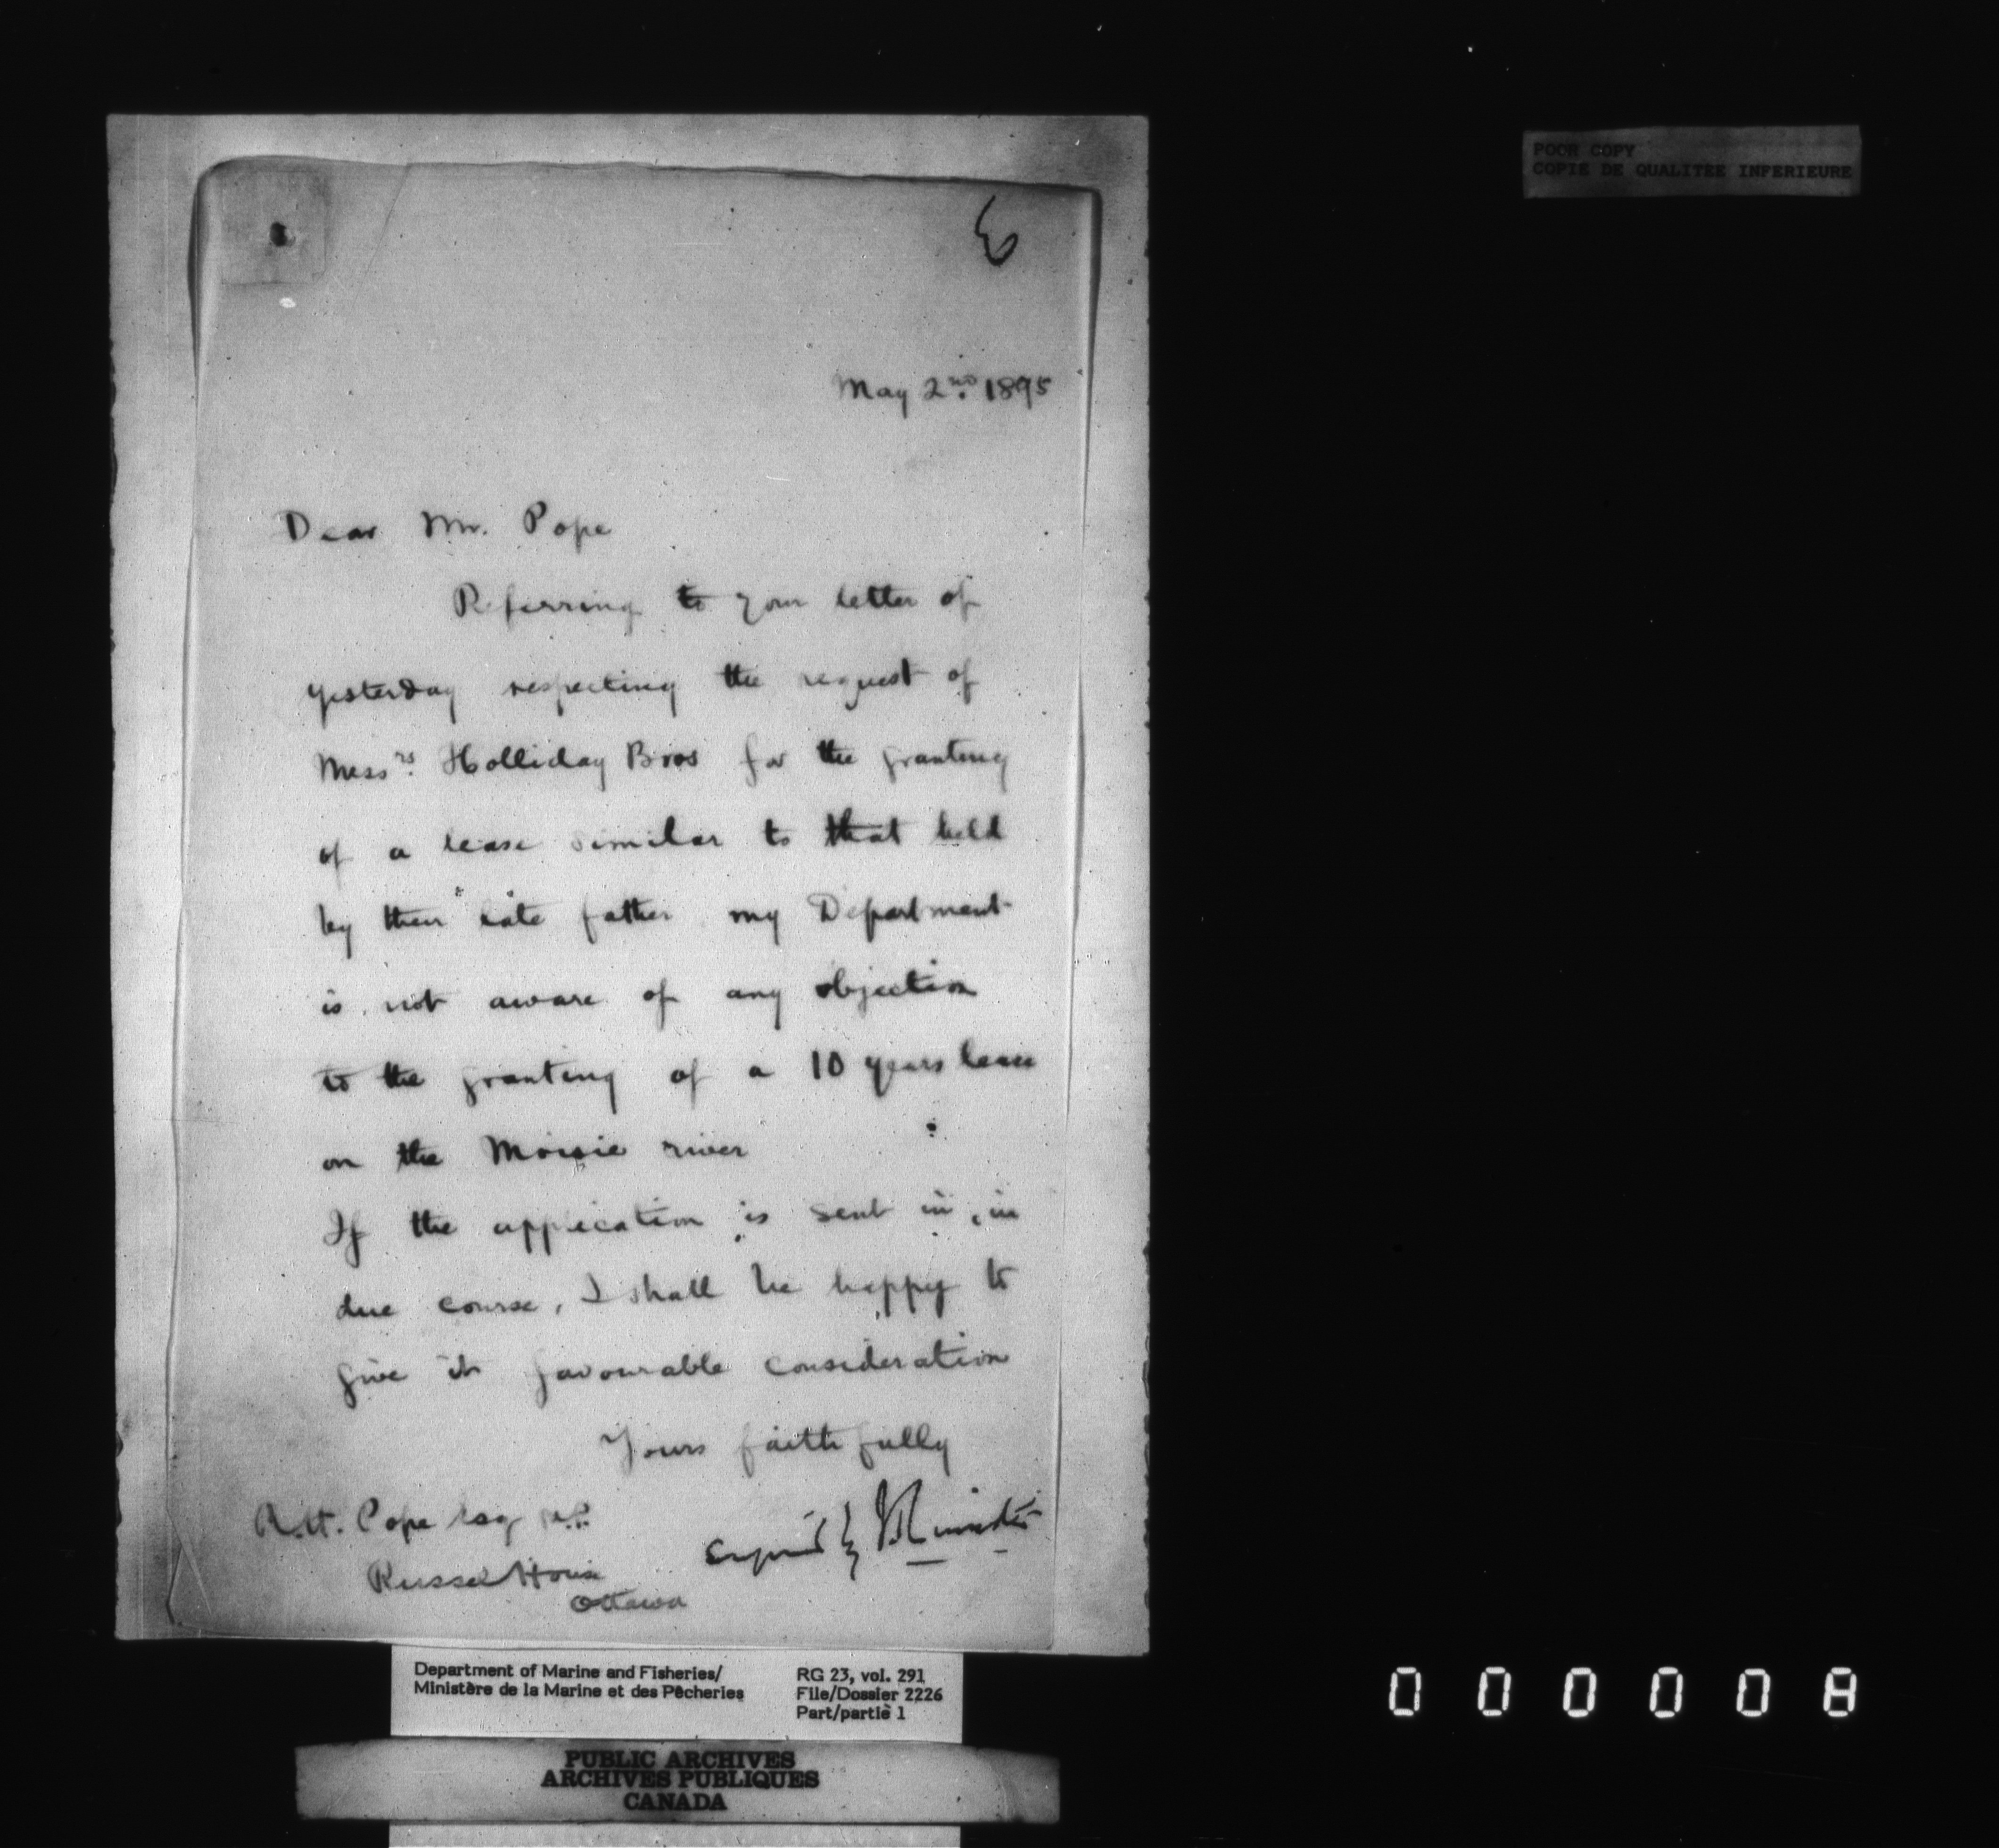 POOR COPY
COPIE DE QUALITEE INFERIEURE
6
May 2nd. 1895
Dear Mr. Pope
Referring to your letter of
yesterday respecting the request of
Messrs. Holliday Bros for the granting
of a lease similar to that held
by their late father my Department
is not aware of any objection
to the granting of a 10 years lease
on the Moisie river
If the application is sent in, in
due course, I shall be happy to
give it favourable consideration
Yours faithfully
R.H. Pope Esq M.P.
Signed by Minister
Russel House
Ottawa
Department of Marine and Fisheries/
Ministère de la Marine et des Pêcheries
RG 23, vol. 291
File/Dossier 2226
Part/partie 1
PUBLIC ARCHIVES
ARCHIVES PUBLIQUES
CANADA
000008